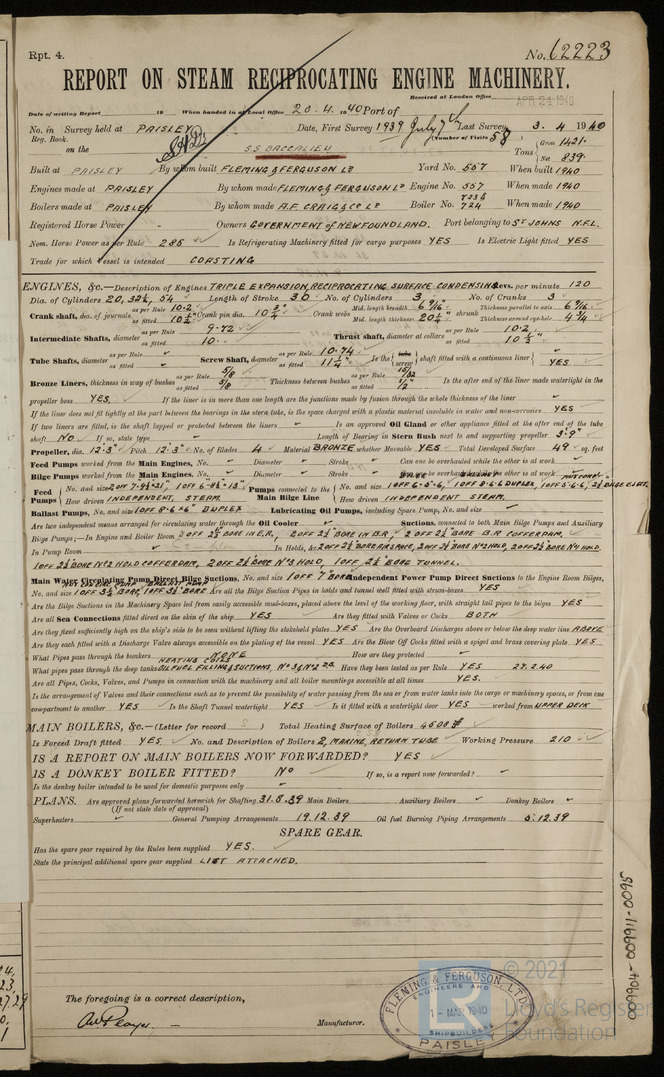 Rpt. 4.
No. 62223
REPORT ON STEAM RECIPROCATING ENGINE MACHINERY.
Received at London Office APR 24 1940
Date of writing Report 19 When handed in at Local Office 20.4.1940 Port of
No. in Survey held at PAISLEY Date, First Survey 1939 July 7th Last Survey 3.4.1940
Reg. Book. Number of Visits 58
on the S.S. BACCALIEU Tons Gross 1421. Net 839.
Built at PAISLEY By whom built FLEMING & FERGUSON LD Yard No. 557 When built 1940
Engines made at PAISLEY By whom made FLEMING & FERGUSON LD Engine No. 557 When made 1940
Boilers made at PAISLEY By whom made A.F. CRAIG & CO LD Boiler No. 724 When made 1940
Registered Horse Power - Owners GOVERNMENT OF NEWFOUNDLAND. Port belonging to ST JOHNS N.F.L.
Nom. Horse Power as per Rule 286 Is Refrigerating Machinery fitted for cargo purposes YES Is Electric Light fitted YES
Trade for which vessel is intended COASTING
ENGINES, &c.—Description of Engines TRIPLE EXPANSION, RECIPROCATING SURFACE CONDENSING Revs. per minute 120
Dia. of Cylinders 20, 32½, 54 Length of Stroke 36 No. of Cylinders 3 No. of Cranks 3
Crank shaft, dia. of journals as per Rule 10.2 as fitted 10½" Crank pin dia. 10½" Crank webs Mid. length breadth 6 9/16" Mid. length thickness 20½" shrunk Thickness parallel to axis 6 9/16" Thickness around eye-hole 4¾"
Intermediate Shafts, diameter as per Rule 9.72 as fitted 10. Thrust shaft, diameter at collars as per Rule 10.2 as fitted 10½"
Tube Shafts, diameter as per Rule as fitted Screw Shaft, diameter as per Rule 10.74 as fitted 11¼" Is the screw shaft fitted with a continuous liner YES
Bronze Liners, thickness in way of bushes as per Rule 5/8 as fitted 5/8 Thickness between bushes as per Rule 15/32 as fitted 1/2" Is the after end of the liner made watertight in the
propeller boss YES. If the liner is in more than one length are the junctions made by fusion through the whole thickness of the liner
If the liner does not fit tightly at the part between the bearings in the stern tube, is the space charged with a plastic material insoluble in water and non-corrosive YES
If two liners are fitted, is the shaft lapped or protected between the liners Is an approved Oil Gland or other appliance fitted at the after end of the tube
shaft NO If so, state type Length of Bearing in Stern Bush next to and supporting propeller 3'-9"
Propeller, dia. 12'-3" Pitch 12'-3" No. of Blades 4 Material BRONZE whether Moveable YES Total Developed Surface 49 sq. feet
Feed Pumps worked from the Main Engines, No. Diameter Stroke Can one be overhauled while the other is at work
Bilge Pumps worked from the Main Engines, No. Diameter Stroke Can one be overhauled while the other is at work
Feed Pumps No. and size Pumps connected to the Main Bilge Line No. and size 1 OFF 6.5.6, 1 OFF 8.6.6 DUPLEX,
How driven INDEPENDENT, STEAM. How driven INDEPENDENT STEAM.
Ballast Pumps, No. and size 1 OFF 8.6.6" DUPLEX Lubricating Oil Pumps, including Spare Pump, No. and size
Are two independent means arranged for circulating water through the Oil Cooler Suctions, connected to both Main Bilge Pumps and Auxiliary
Bilge Pumps;—In Engine and Boiler Room 2 OFF 2½" BORE IN E.R, 2 OFF 2½" BORE IN B.R, 2 OFF 2½" BORE B.R COFFERDAM,
In Pump Room In Holds, &c. 2 OFF 2½" BORE AIR SPACE, 2 OFF 2½" BORE Nº1 HOLD, 2 OFF 2½" BORE Nº4 HOLD.
1 OFF 2½" BORE Nº2 HOLD COFFERDAM, 2 OFF 2½" BORE Nº3 HOLD, 1 OFF 2½" BORE TUNNEL.
Main Water Circulating Pump Direct Bilge Suctions, No. and size 1 OFF 7" BORE Independent Power Pump Direct Suctions to the Engine Room Bilges,
No. and size 1 OFF 3½" BORE, 1 OFF 3½" BORE Are all the Bilge Suction Pipes in holds and tunnel well fitted with strum-boxes YES
Are the Bilge Suctions in the Machinery Space led from easily accessible mud-boxes, placed above the level of the working floor, with straight tail pipes to the bilges YES
Are all Sea Connections fitted direct on the skin of the ship YES Are they fitted with Valves or Cocks BOTH
Are they fixed sufficiently high on the ship's side to be seen without lifting the stokehold plates YES Are the Overboard Discharges above or below the deep water line ABOVE
Are they each fitted with a Discharge Valve always accessible on the plating of the vessel YES Are the Blow Off Cocks fitted with a spigot and brass covering plate YES
What Pipes pass through the bunkers NONE How are they protected
What pipes pass through the deep tanks HEATING COILS OIL FUEL FILLING & SUCTIONS, Have they been tested as per Rule YES 27.2.40
Are all Pipes, Cocks, Valves, and Pumps in connection with the machinery and all boiler mountings accessible at all times YES.
Is the arrangement of Valves and their connections such as to prevent the possibility of water passing from the sea or from water tanks into the cargo or machinery spaces, or from one
compartment to another YES Is the Shaft Tunnel watertight YES Is it fitted with a watertight door YES worked from UPPER DECK
MAIN BOILERS, &c.—(Letter for record S) Total Heating Surface of Boilers 4508
Is Forced Draft fitted YES No. and Description of Boilers 2, MARINE, RETURN TUBE Working Pressure 210
IS A REPORT ON MAIN BOILERS NOW FORWARDED? YES
IS A DONKEY BOILER FITTED? NO If so, is a report now forwarded?
Is the donkey boiler intended to be used for domestic purposes only
PLANS. Are approved plans forwarded herewith for Shafting 31.5.39 Main Boilers Auxiliary Boilers Donkey Boilers
(If not state date of approval)
Superheaters General Pumping Arrangements 19.12.39 Oil fuel Burning Piping Arrangements 5.12.39
SPARE GEAR.
Has the spare gear required by the Rules been supplied YES.
State the principal additional spare gear supplied LIST ATTACHED.
The foregoing is a correct description,
Manufacturer.
FLEMING & FERGUSON LTD
ENGINEERS AND
1 - MAR 1940
SHIPBUILDERS
PAISLEY
© 2021
Lloyd's Register
Foundation
009904-009911-0095